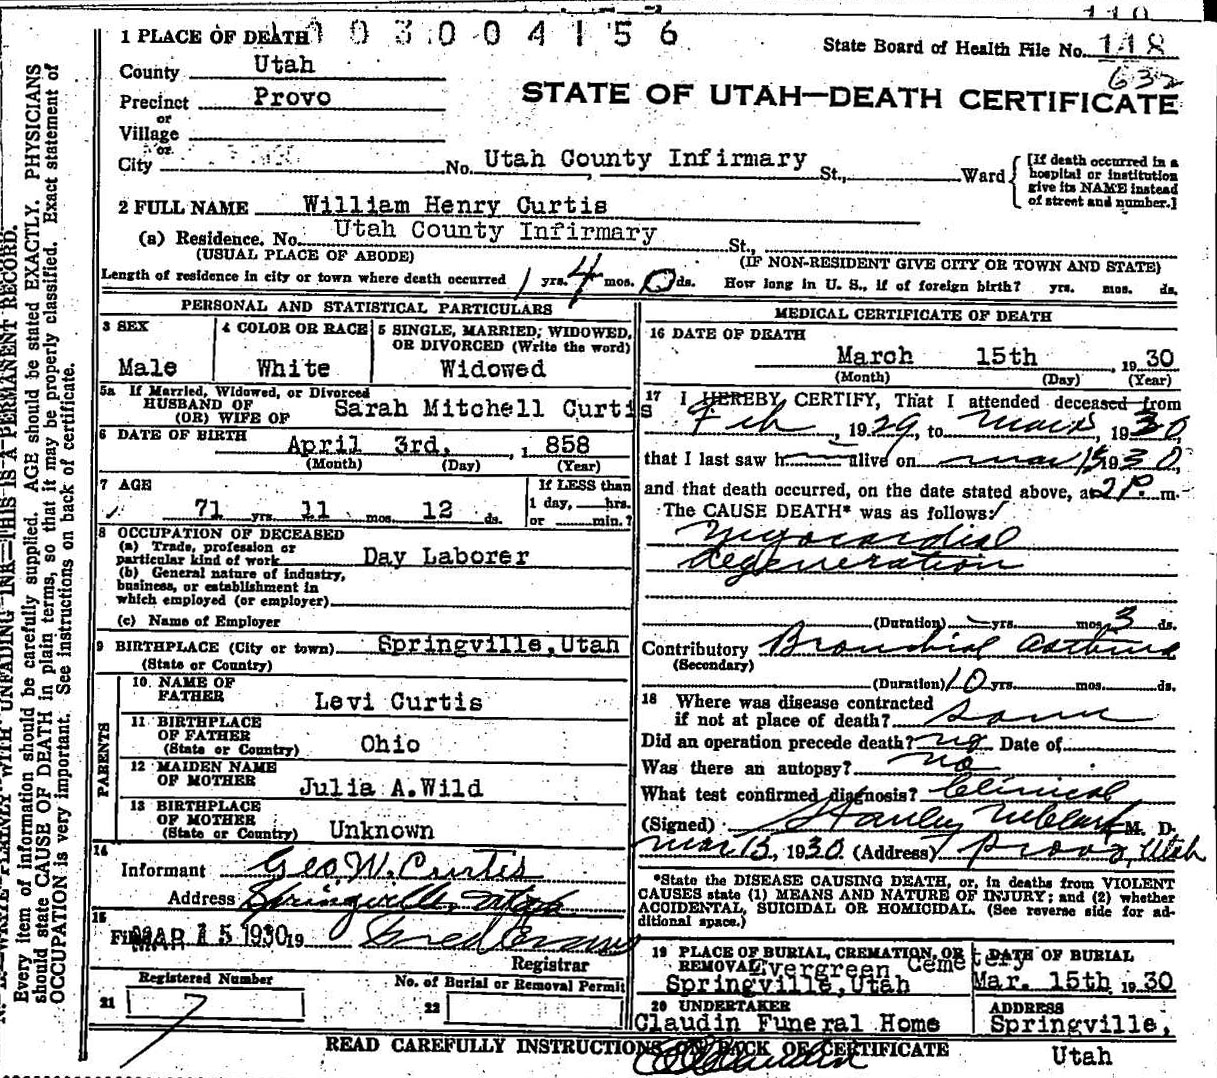 1 PLACE OF DEATH 003004156
State Board of Health File No. 118
632
County Utah
STATE OF UTAH—DEATH CERTIFICATE
Precinct Provo
or
Village
or
City
No. Utah County Infirmary St., Ward
[If death occurred in a
hospital or institution
give its NAME instead
of street and number.]
2 FULL NAME William Henry Curtis
(a) Residence. No. Utah County Infirmary St.,
(USUAL PLACE OF ABODE) (IF NON-RESIDENT GIVE CITY OR TOWN AND STATE)
Length of residence in city or town where death occurred 1 yrs. 4 mos. 0 ds. How long in U. S., if of foreign birth? yrs. mos. ds.
PERSONAL AND STATISTICAL PARTICULARS
3 SEX
Male
4 COLOR OR RACE
White
5 SINGLE, MARRIED, WIDOWED,
OR DIVORCED (Write the word)
Widowed
5a If Married, Widowed, or Divorced
HUSBAND OF
(OR) WIFE OF Sarah Mitchell Curtis
6 DATE OF BIRTH April 3rd, 1858
(Month) (Day) (Year)
7 AGE
71 yrs 11 mos 12 ds.
If LESS than
1 day, hrs.
or min.?
8 OCCUPATION OF DECEASED
(a) Trade, profession or
particular kind of work Day Laborer
(b) General nature of industry,
business, or establishment in
which employed (or employer)
(c) Name of Employer
9 BIRTHPLACE (City or town) Springville,Utah
(State or Country)
PARENTS
10 NAME OF
FATHER Levi Curtis
11 BIRTHPLACE
OF FATHER
(State or Country) Ohio
12 MAIDEN NAME
OF MOTHER Julia A.Wild
13 BIRTHPLACE
OF MOTHER
(State or Country) Unknown
14
Informant Geo W. Curtis
Address Springville, Utah
15
MAR 15 1930 19
Registrar
Registered Number
21 7
No. of Burial or Removal Permit
22
MEDICAL CERTIFICATE OF DEATH
16 DATE OF DEATH
March 15th, 1930
(Month) (Day) (Year)
17 I HEREBY CERTIFY, That I attended deceased from
Feb, 1929, to Mar 15, 1930,
that I last saw h alive on Mar 15 1930,
and that death occurred, on the date stated above, at 2 P. m.
The CAUSE DEATH* was as follows:
Myocardial
degeneration
(Duration) yrs. mos. 3 ds.
Contributory Bronchial asthma
(Secondary)
(Duration) 10 yrs. mos. ds.
18 Where was disease contracted
if not at place of death? same
Did an operation precede death? no Date of
Was there an autopsy? no
What test confirmed diagnosis? Clinical
(Signed) Stanley M. Clark M. D.
Mar 15, 1930 (Address) Provo, Utah
*State the DISEASE CAUSING DEATH, or, in deaths from VIOLENT
CAUSES state (1) MEANS AND NATURE OF INJURY; and (2) whether
ACCIDENTAL, SUICIDAL OR HOMICIDAL. (See reverse side for ad-
ditional space.)
19 PLACE OF BURIAL, CREMATION, OR
REMOVAL Evergreen Cemetery
Springville,Utah
DATE OF BURIAL
Mar. 15th 1930
20 UNDERTAKER
Claudin Funeral Home
ADDRESS
Springville,
Utah
READ CAREFULLY INSTRUCTIONS ON BACK OF CERTIFICATE
N. B.—WRITE PLAINLY WITH UNFADING INK—THIS IS A PERMANENT RECORD.
Every item of information should be carefully supplied. AGE should be stated EXACTLY. PHYSICIANS
should state CAUSE OF DEATH in plain terms, so that it may be properly classified. Exact statement of
OCCUPATION is very important. See instructions on back of certificate.